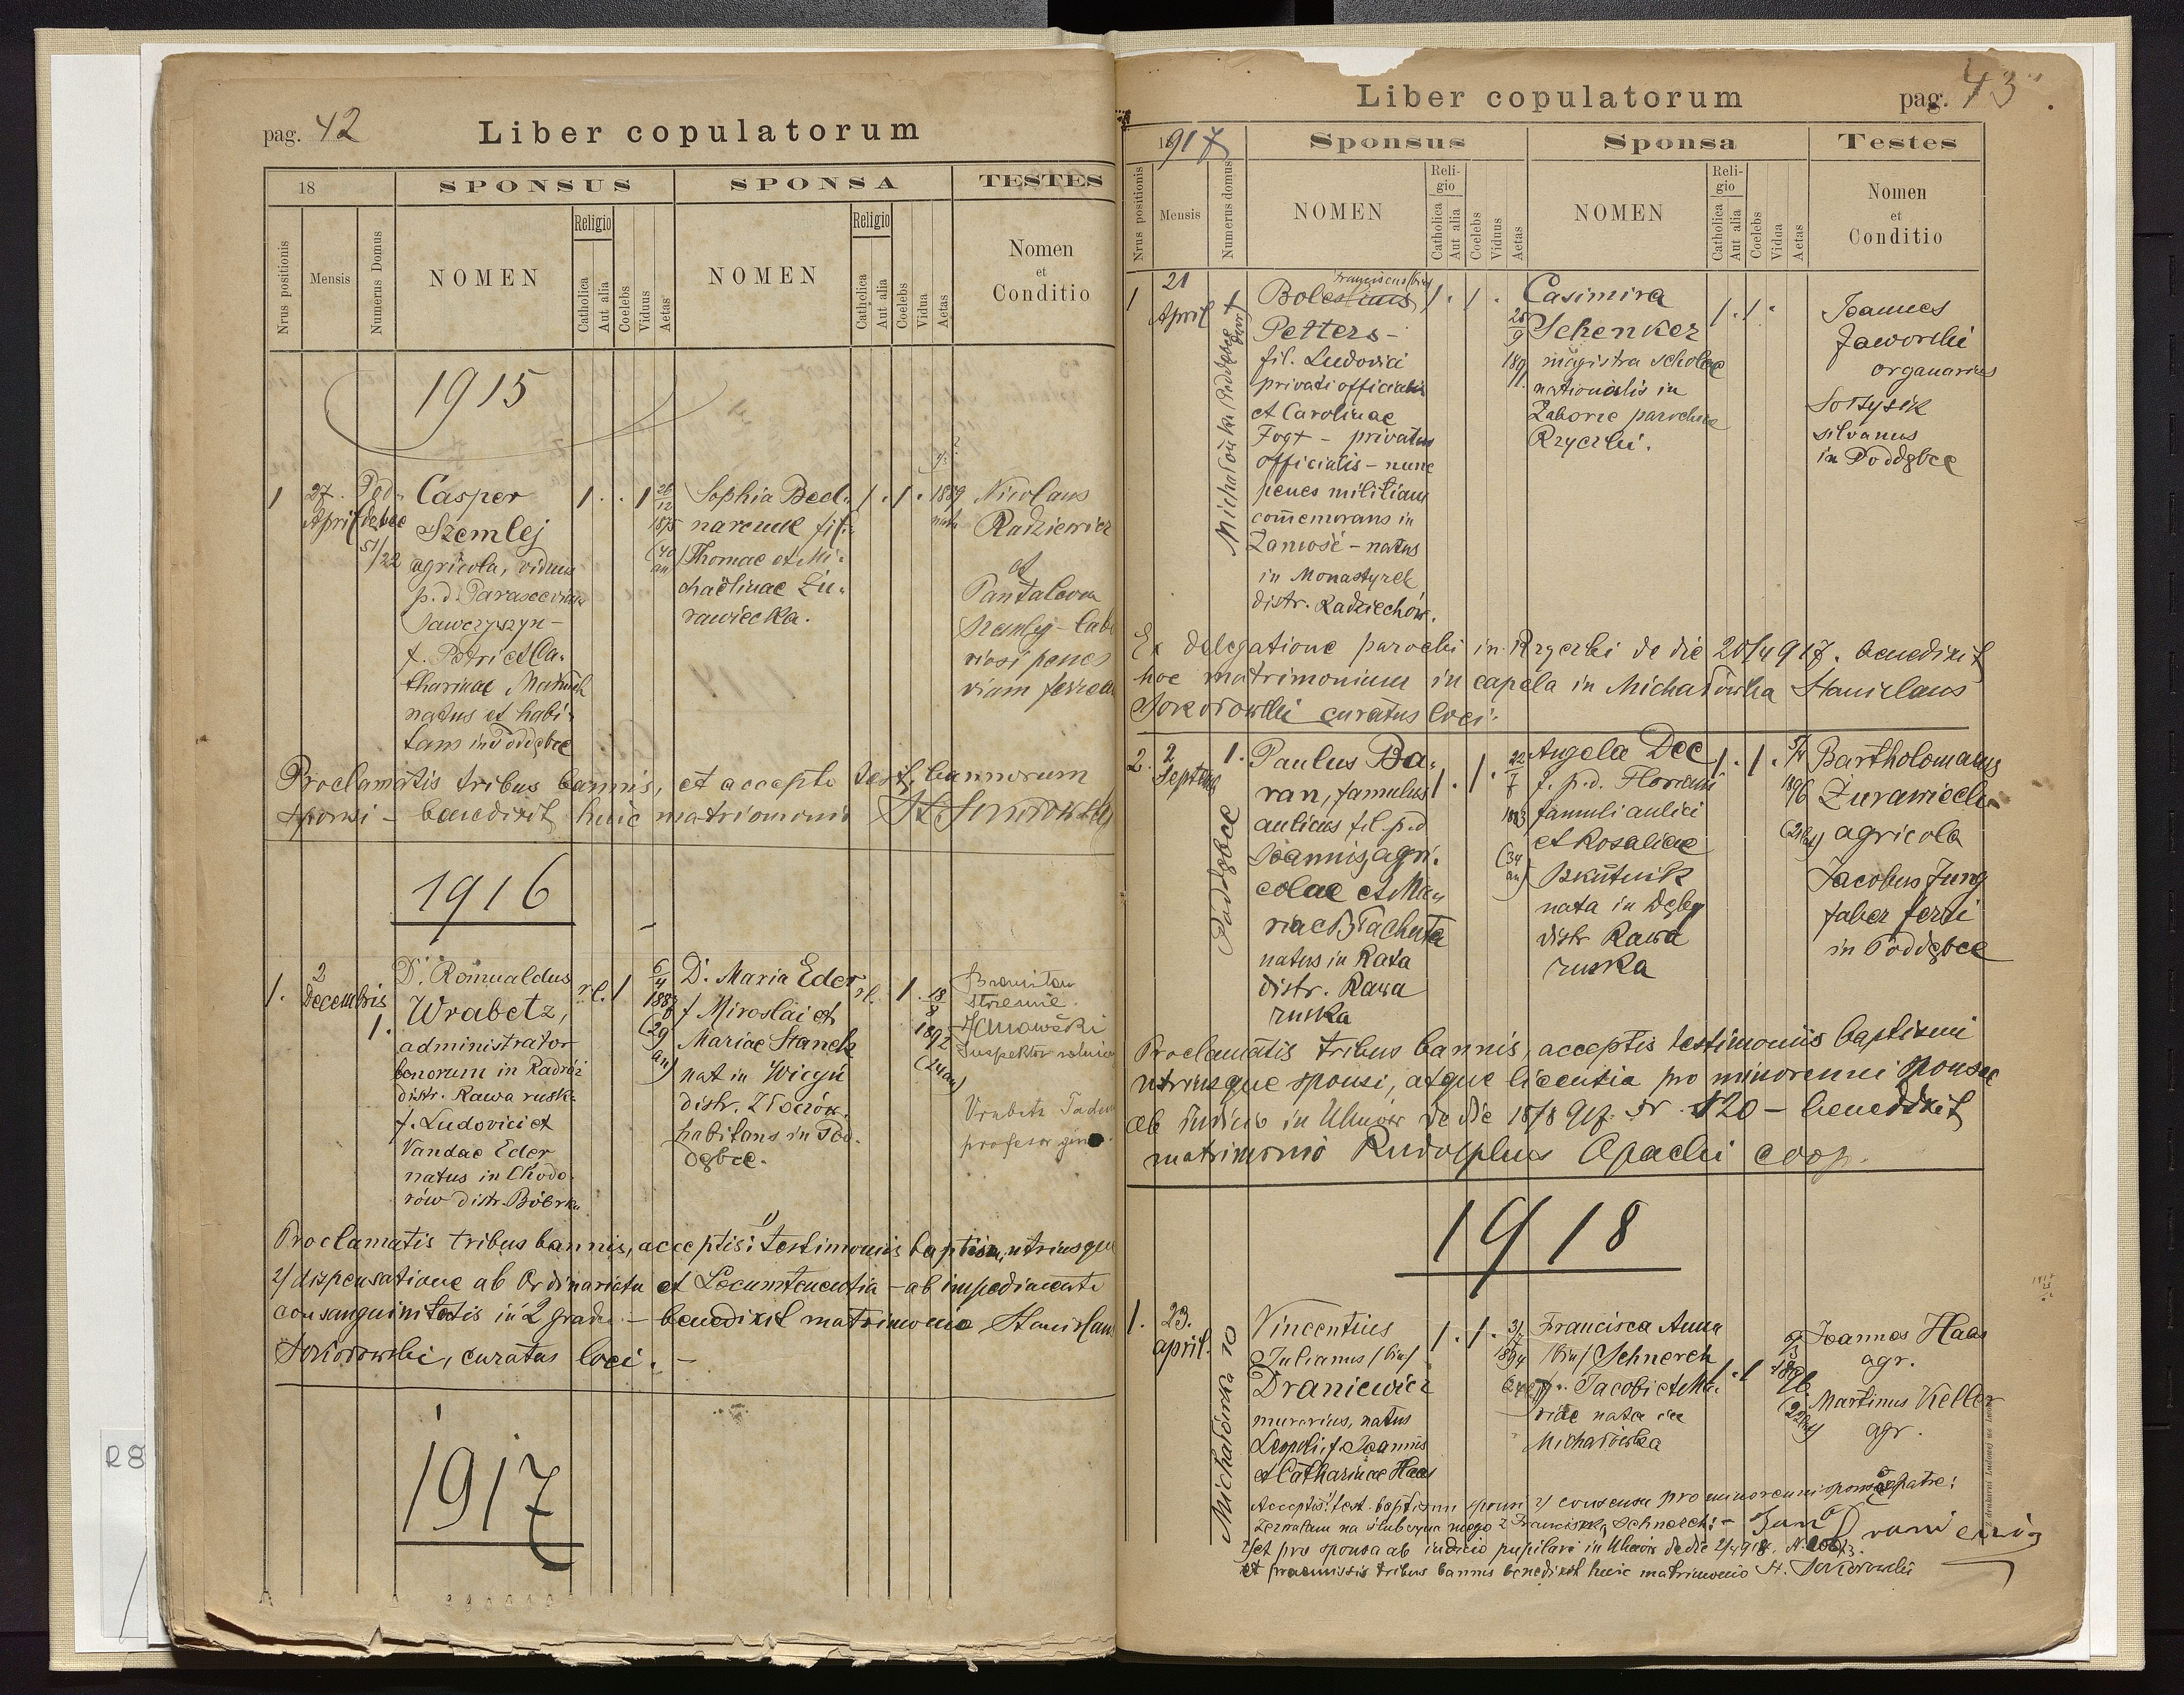 pag. 42
Liber copulatorum
18
SPONSUS
SPONSA
TESTES
Nrus positionis
Mensis
Numerus Domus
NOMEN
Religio
Catholica
Aut alia
Coelebs
Viduus
Aetas
NOMEN
Religio
Catholica
Aut alia
Coelebs
Vidua
Aetas
Nomen
et
Conditio
1915
1
27.
April
Pod-
dębce
51/22
Casper
Szemlej
agricola, viduus
p. d. Parascevia
Sawczyszyn -
f. Petri et Ca-
tharinae
natus et habi-
tans in Poddębce
1 . . 1
26
12
1875
(40
an)
Sophia Bed-
narczuk fil.
Thomae et Mi-
chaelinae Żu-
rawiecka.
1 . 1 .
1889
nata
Nicolaus
Radziewicz
et
Pantaleon
Szemlej - labo
riosi penes
viam ferream
Proclamatis tribus bannis, et accepto test. bannorum
sponsi - benedixit huic matriomonio St.
1916
1.
2
Decembris
1.
D. Romualdus
Wrabetz,
administrator
bonorum in Radróż
distr. Rawa rusk.
f. Ludovici et
Vandae Eder
natus in Chodo-
rów distr. Bóbrka
r.l. 1
6
4
(29
an)
D. Maria Eder
f Miroslai et
Mariae Stanek
nat in Wicyń
distr. Złoczów.
habitans in Pod-
dębce.
r.l. 1 .
18
8
1892
(24 an)
Inspektor
profesor gim.
Proclamatis tribus bannis, acceptis: 1) testimoniis baptism. utriusque
2) dispensatione ab Ordinariatu et Locumtenentia - ab impedimento
consanguinitatis in 2 gradu - benedixit matrimonio Stanislaus
Sokołowski, curatus loci. -
1917
Liber copulatorum
pag. 43
1917
Sponsus
Sponsa
Testes
Nrus positionis
Mensis
Numerus domus
NOMEN
Reli-
gio
Catholica
Aut alia
Coelebs
Viduus
Aetas
NOMEN
Reli-
gio
Catholica
Aut alia
Coelebs
Vidua
Aetas
Nomen
et
Conditio
1
21
April
Michałówka Poddębce
Franciscus (bin)
Boleslaus
Petters -
fil. Ludovici
privati officialis
et Carolinae
Fogt - privatus
officialis - nunc
penes militiam
comemorans in
Zamość - natus
in Monastyrek
distr. Radziechów.
1 . 1 .
Casimira
Schenker
magistra scholae
nationalis in
Zaborze parochiae
Rzyczki.
1 . 1 .
Joannes
Jaworski
organarius
Sołtysik
silvanus
in Poddębce
Ex delegatione parochi in Rzyczki de die 20/4 917. benedixit
hoc matrimonium in capela in Michałówka Stanislaus
Sokołowski curatus loci.
2.
2
Septmb
1.
Poddębce
Paulus Ba-
ran, famulus
aulicus fil. p.d
Joannis, agri-
colae et Ma-
riae Błachuta
natus in Rata
distr. Rawa
ruska
1 . 1 .
22
7
1883
(34
an)
Angela Dec
f. p.d. Floriani
famuli aulici
et Rosaliae
nata in Dęby
distr Rawa
ruska
1 . 1 .
1896
Bartholomaeus
Żurawiecki
agricola
Jacobus Jung
faber ferri
in Poddębce
Proclamatis tribus bannis, acceptis testimoniis baptismi
utriusque sponsi, atque licentia pro minorenni sponsae
ab iudicio in Uhnów de die 18/8 917. Nr. 120 - benedixit
matrimonio Rudolphus Opachi coop.
1918
1.
23.
april.
Michałówka 10
Vincentius
Julianus /bin/
Draniewicz
murarius, natus
Leopoli, f. Joannis
et Catharinae Haas
1 . 1 .
1894
Francisca Anna
/bin/ Schnerch
f. Jacobi et Ma-
riae nata in
Michałówka
1 . 1
1896
Joannes Haas
agr.
Martinus Keller
agr.
Acceptis: 1) test. baptismi sponsi 2) consensu pro minorenni sponso a patre:
Zezwalam na ślub syna mego z Franciszką Schnerch: - Jan Draniewicz
3) et pro sponsa ab iudicio pupilari in Uhnów de die 2/4 918.
et praemissis tribus bannis benedixit huic matrimonio St. Sokołowski
R8